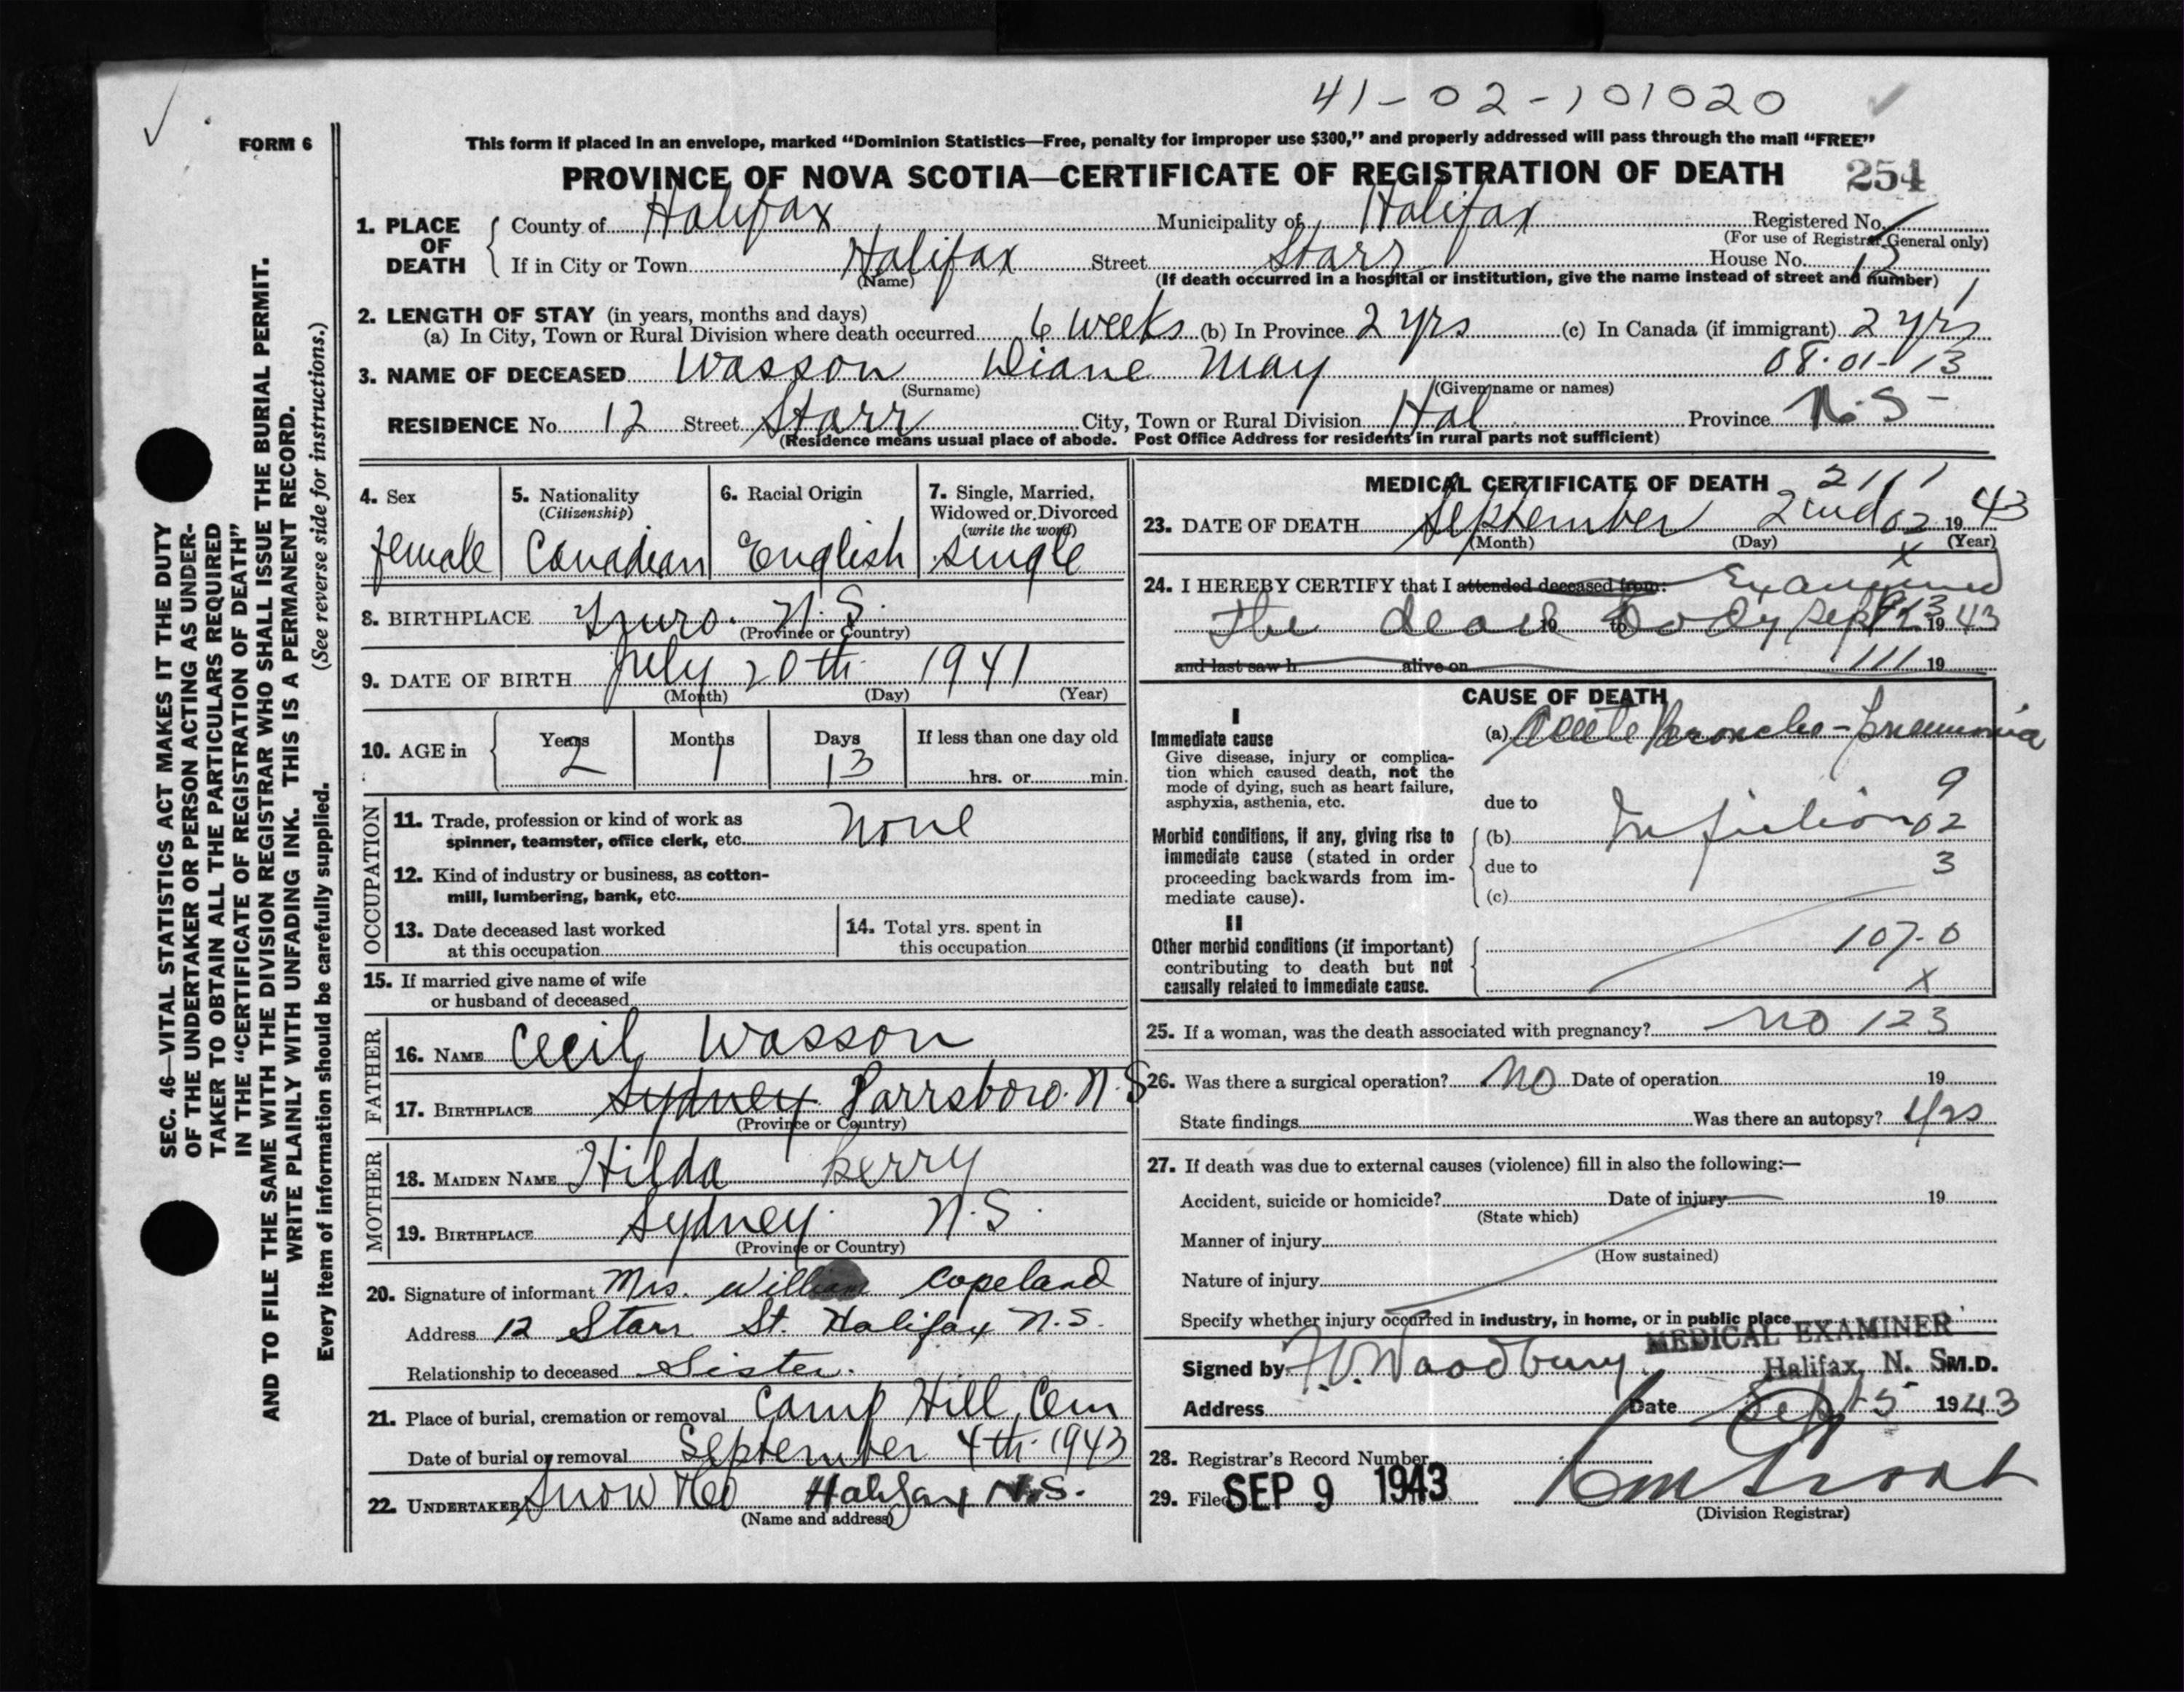 41-02-101020
FORM 6
This form if placed in an envelope, marked “Dominion Statistics—Free, penalty for improper use $300,” and properly addressed will pass through the mail “FREE”
PROVINCE OF NOVA SCOTIA—CERTIFICATE OF REGISTRATION OF DEATH 254
1. PLACE OF DEATH County of Halifax Municipality of Halifax Registered No.
(For use of Registrar General only)
If in City or Town Halifax Street Starr House No. 12
(Name) (If death occurred in a hospital or institution, give the name instead of street and number)
2. LENGTH OF STAY (in years, months and days)
(a) In City, Town or Rural Division where death occurred 6 weeks (b) In Province 2 yrs (c) In Canada (if immigrant) 2 yrs
3. NAME OF DECEASED Wasson Diane May 08-01-13
(Surname) (Given name or names)
RESIDENCE No. 12 Street Starr City, Town or Rural Division Hal Province N.S-
(Residence means usual place of abode. Post Office Address for residents in rural parts not sufficient)
4. Sex
female
5. Nationality
(Citizenship)
Canadian
6. Racial Origin
English
7. Single, Married, Widowed or Divorced
(write the word)
single
8. BIRTHPLACE Truro. N.S.
(Province or Country)
9. DATE OF BIRTH July 20th 1941
(Month) (Day) (Year)
10. AGE in Years Months Days If less than one day old
2 1 13 hrs. or min.
OCCUPATION
11. Trade, profession or kind of work as
spinner, teamster, office clerk, etc. None
12. Kind of industry or business, as cotton-
mill, lumbering, bank, etc.
13. Date deceased last worked
at this occupation
14. Total yrs. spent in
this occupation
15. If married give name of wife
or husband of deceased
FATHER
16. NAME Cecil Wasson
17. BIRTHPLACE Sydney Parrsboro. N.S
(Province or Country)
MOTHER
18. MAIDEN NAME Hilda Kerry
19. BIRTHPLACE Sydney. N.S.
(Province or Country)
20. Signature of informant Mrs. William Copeland
Address 12 Starr St. Halifax N.S.
Relationship to deceased Sister.
21. Place of burial, cremation or removal Camp Hill Cem
Date of burial or removal September 4th 1943
22. UNDERTAKER Snow & Co Halifax N.S.
(Name and address)
MEDICAL CERTIFICATE OF DEATH 2111
23. DATE OF DEATH September 2nd 02 1943
(Month) (Day) (Year)
x
24. I HEREBY CERTIFY that I attended deceased from: Examined
the dead 19 to body Sept 1943
and last saw h alive on 111 19
CAUSE OF DEATH
I
Immediate cause
Give disease, injury or complica-
tion which caused death, not the
mode of dying, such as heart failure,
asphyxia, asthenia, etc.
(a) Acute Broncho-Pneumonia
9
due to
Morbid conditions, if any, giving rise to
immediate cause (stated in order
proceeding backwards from im-
mediate cause).
(b) Infection 02
due to 3
(c)
II
Other morbid conditions (if important)
contributing to death but not
causally related to immediate cause.
107-0
x
25. If a woman, was the death associated with pregnancy? No 123
26. Was there a surgical operation? No Date of operation 19
State findings Was there an autopsy? Yes
27. If death was due to external causes (violence) fill in also the following:—
Accident, suicide or homicide? Date of injury 19
(State which)
Manner of injury
(How sustained)
Nature of injury
Specify whether injury occurred in industry, in home, or in public place
MEDICAL EXAMINER
Signed by Woodbury Halifax, N. S. M.D.
Address Date Sept 5 1943
28. Registrar's Record Number
29. Filed SEP 9 1943
(Division Registrar)
SEC. 46—VITAL STATISTICS ACT MAKES IT THE DUTY
OF THE UNDERTAKER OR PERSON ACTING AS UNDER-
TAKER TO OBTAIN ALL THE PARTICULARS REQUIRED
IN THE “CERTIFICATE OF REGISTRATION OF DEATH”
AND TO FILE THE SAME WITH THE DIVISION REGISTRAR WHO SHALL ISSUE THE BURIAL PERMIT.
WRITE PLAINLY WITH UNFADING INK. THIS IS A PERMANENT RECORD.
Every item of information should be carefully supplied. (See reverse side for instructions.)